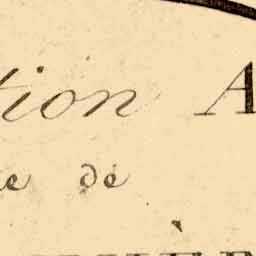 tion A
e de